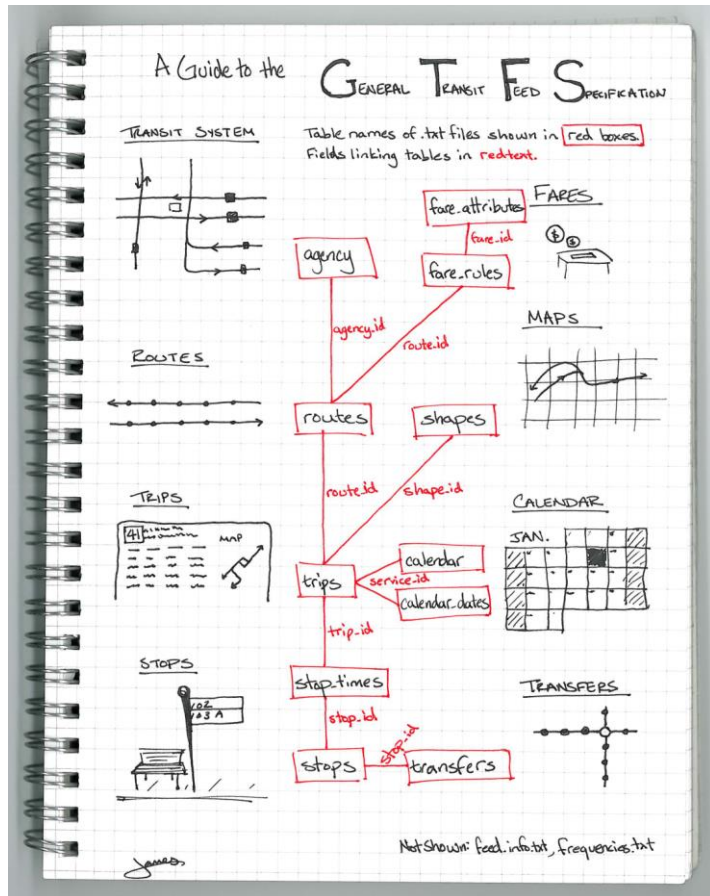 A Guide to the GENERAL TRANSIT FEED SPECIFICATION
TRANSIT SYSTEM
Table names of .txt files shown in red boxes.
Fields linking tables in red text.
fare_attributes
FARES
fare_id
$
$
agency
fare_rules
agency_id
route_id
MAPS
ROUTES
routes
shapes
route_id
shape_id
TRIPS
41
MAP
CALENDAR
JAN.
trips
calendar
service_id
calendar_dates
trip_id
STOPS
102
103 A
stop_times
stop_id
TRANSFERS
stops
stop_id
transfers
Not Shown: feed_info.txt, frequencies.txt
James